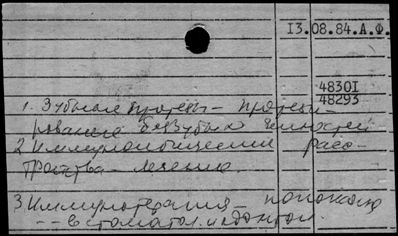 13.08.84.А.Ф.
48301
48293
1. Зубные протезы – протези-
рование беззубых челюстей
2 Иммунологические расс-
тройства – лечение.
3 Иммунотерапия –
– в стоматол.